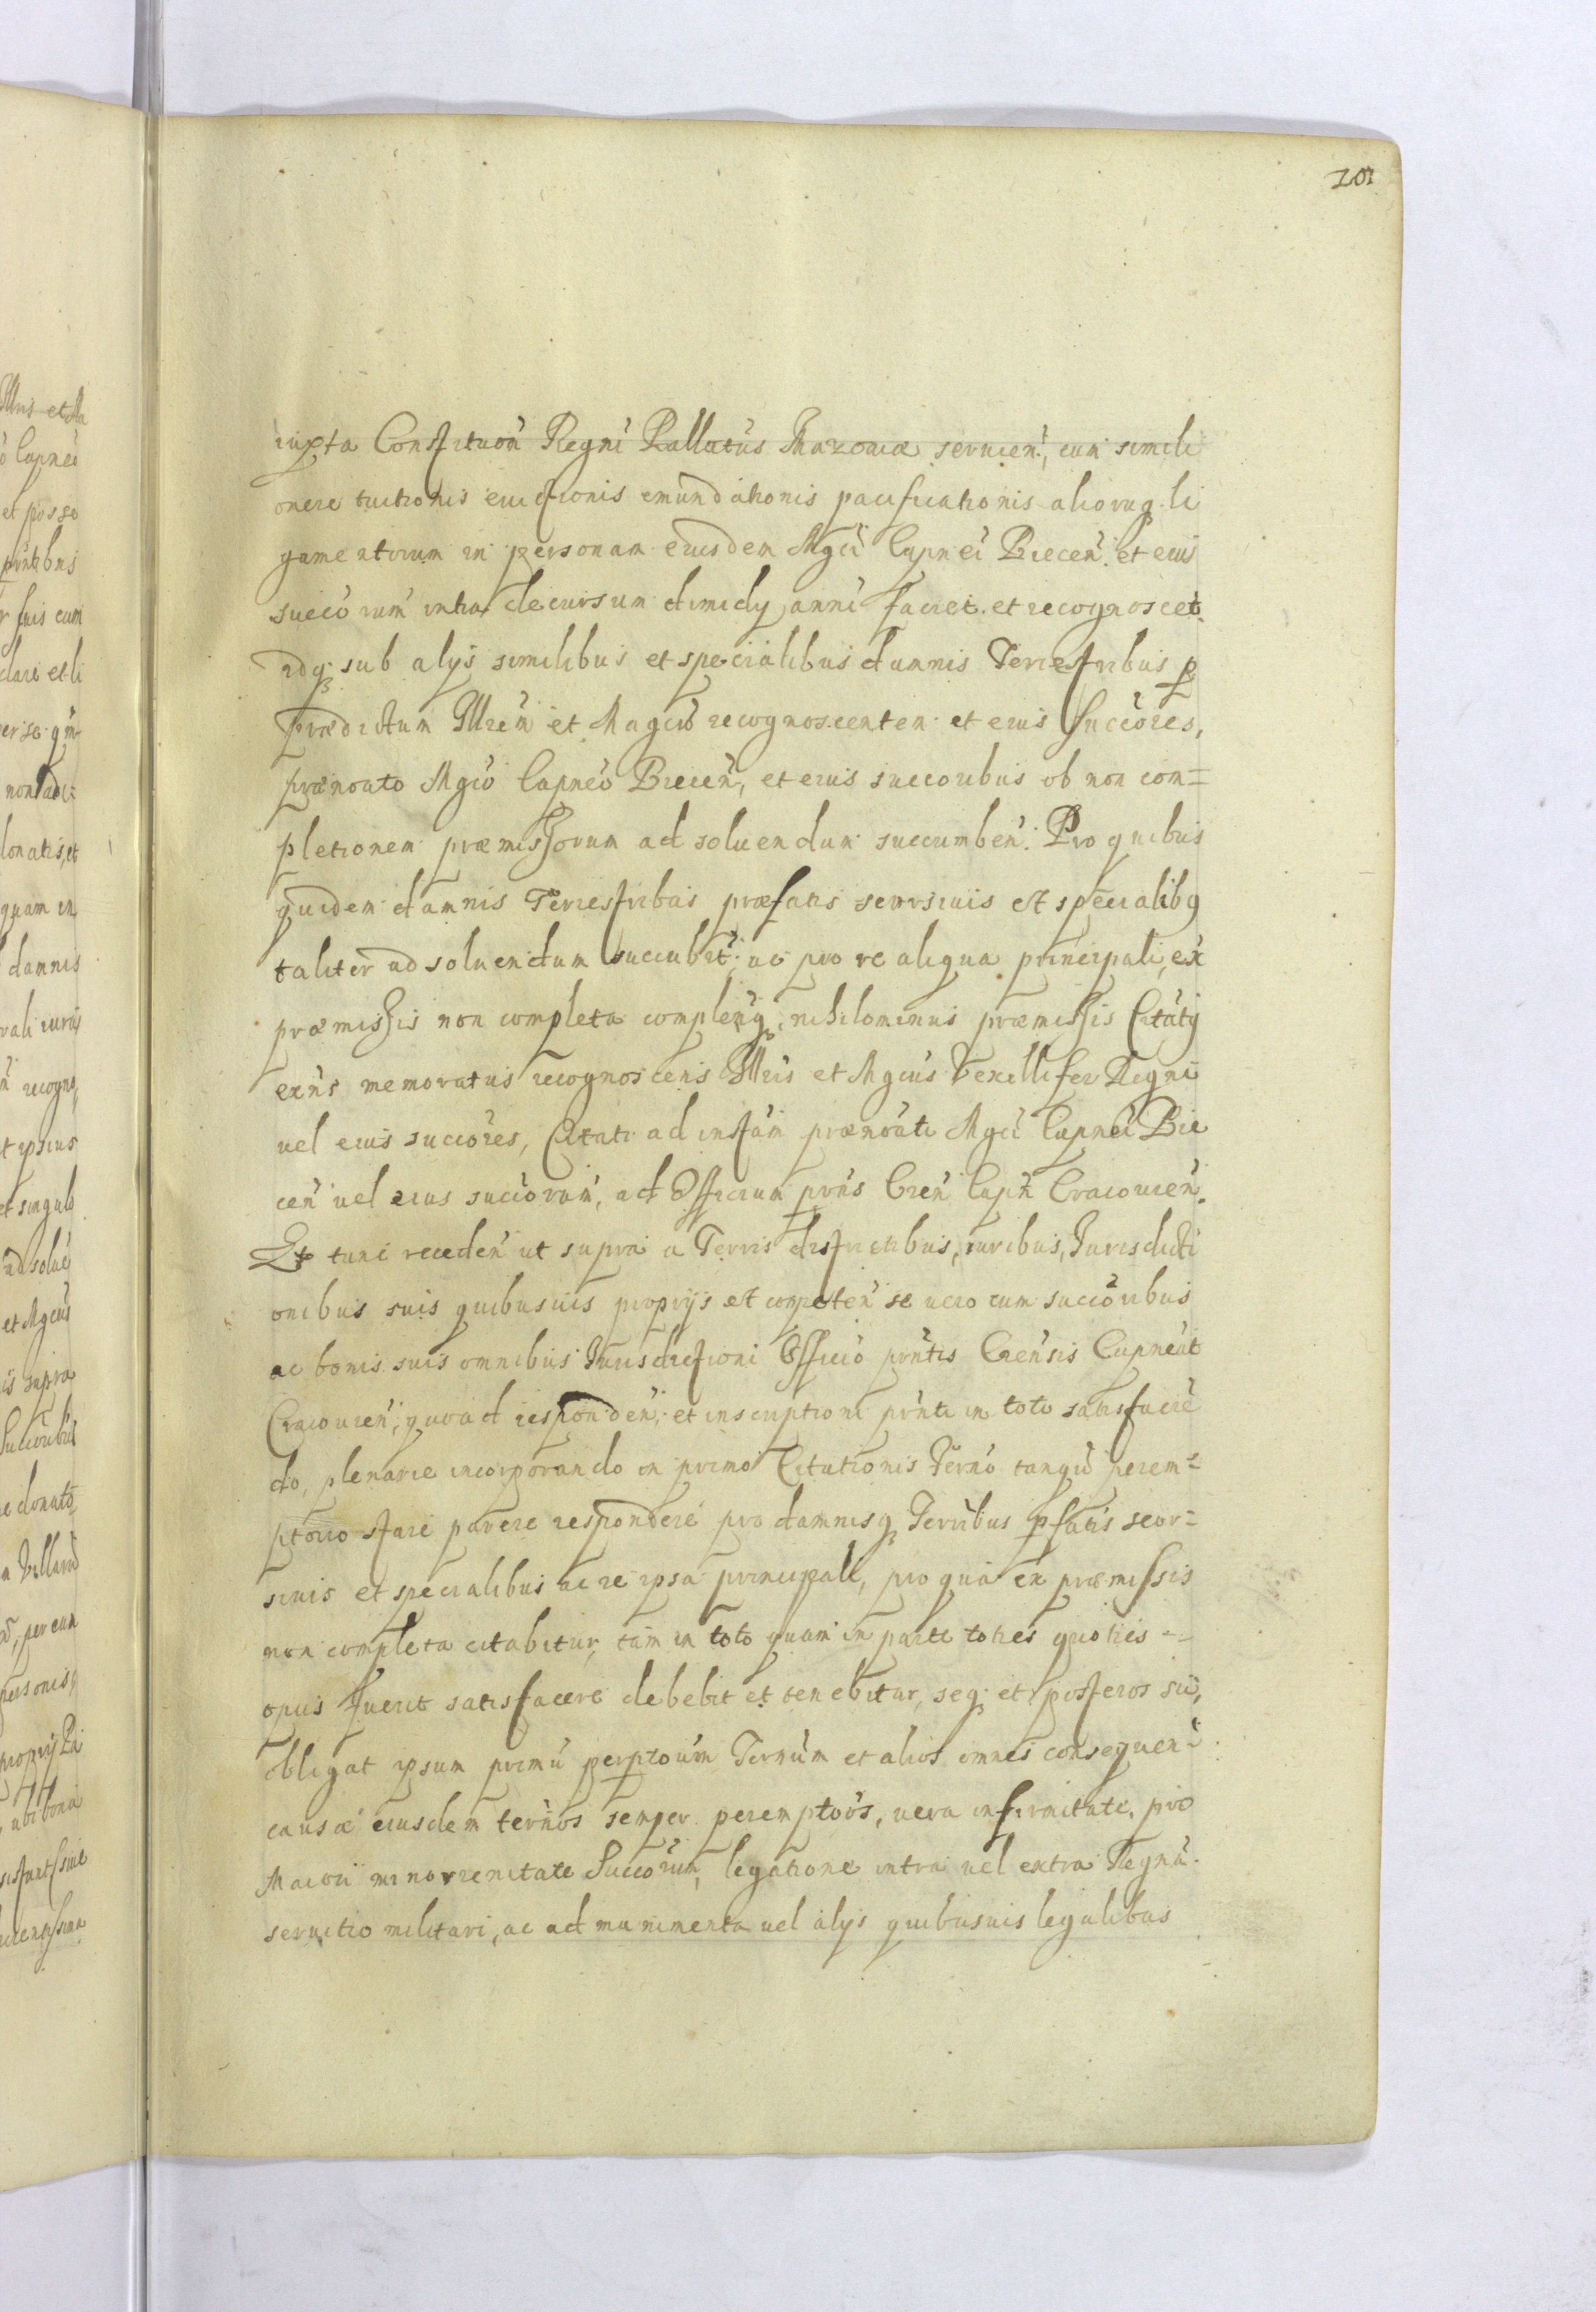 101
iuxta Constituōn Regni Pallatūs Mazoviæ servien̄, cum simili
onere tuitionis evictionis emundationis pacificationis aliorūq li
gamentorum in personam eiusdem Mgci Capnei Biecen̄. et eius
succorum intra decursum dimidy anni faciet. et recognoscet.
idq; sub alys similibus et specialibus damnis Terrestribus p
prædictum Illrem et Magcū recognoscentem et eius Succores,
prænoato Mgco Capneo Biecen̄, et eius succoribus ob non com=
pletionem præmissorum ad solvendum succumben̄. Pro quibus
quidem damnis Terrestribus præfatis seorsivis et specialibq
taliter ad solvendum succubit̄; ac pro re aliqua principali, ex
præmissis non completa complenq; nihilominus præmissis Citatq
exn̄s memoratus recognoscens Illris et Mgcus Vexillifer Regni
vel eius succores, Citati ad instān prænoati Mgci Capnei Bie
cen̄ vel eius succorum, ad Officium prn̄s Cren̄ Capn̄ Cracovien̄.
Et tunc receden̄ ut supra a Terris districtibus, iuribus, Jurisdicti
onibus suis quibusvis proprijs et competen̄ se vero cum succoribus
ac bonis suis omnibus Jurisdictioni Officio prn̄tis Cren̄sis Capneat
Cracovien̄; quoad responden̄; et inscriptioni prn̄ti in toto satisfacie
do, plenarie incorporando in primo Citationis Termo tanqū perem=
ptorio stare parere respondere pro damnisq; Terribus pfatis seor=
sivis et specialibus ac re ipsa principali, pro qua ex præmissis
non completa citabitur, tam in toto quam in parte toties quoties =
opus fuerit satisfacere debebit et tenebitur, seq; et posteros su̅,
obligat ipsum primū perptoriūm Termum et alios omnes consequen̄
causæ eiusdem termos semper peremptoos, vera infirmitate, pro
Maiori minorrenitate Succorum, legatione intra vel extra Regnū.
servitio militari, ac ad munimenta vel alys quibusvis legalibus